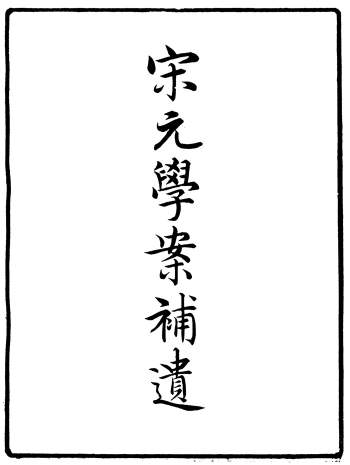 宋元學案補遺